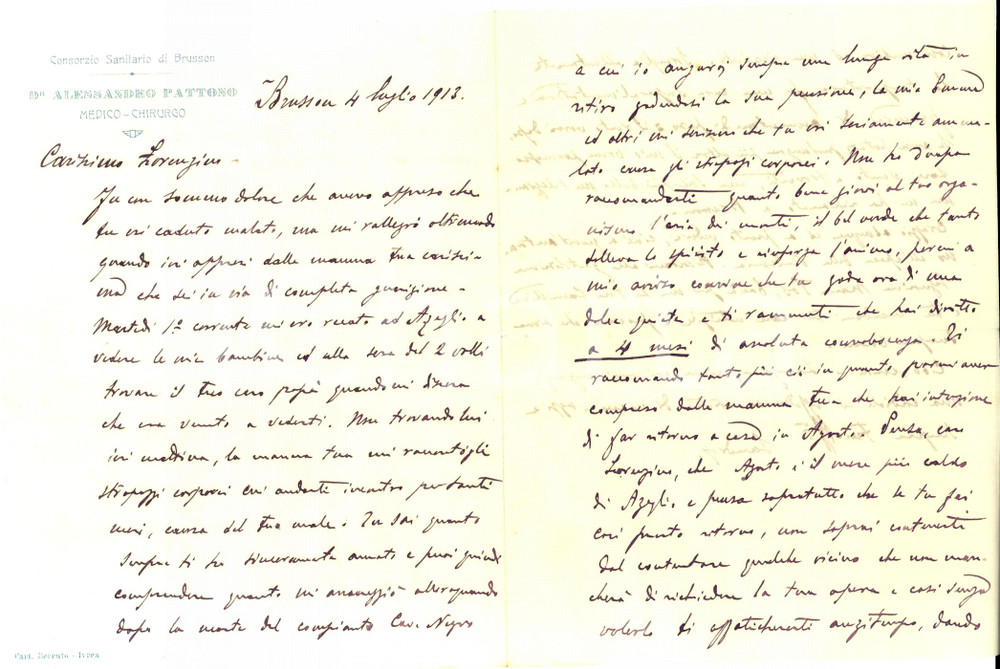 Consorzio Sanitario di Brusson
Dr. ALESSANDRO PATTONO
MEDICO-CHIRURGO
Brusson 4 luglio 1913.
Carissimo Lorenzino -
Fu con sommo dolore che avevo appreso che
tu eri caduto malato, ma mi rallegrò oltremodo
quando ivi appresi dalle mamma tua carissi-
ma che sei in via di completa guarigione -
Martedì 1º corrente mi ero recato ad Azeglio a
vedere le mie bambine ed alla sera del 2 volli
trovare il tuo caro papà quando mi disse
che era venuto a vederti. Non trovando lui
ivi mattina, la mamma tua mi raccontò gli
strapazzi corporei cui andasti incontro per tanti
mesi, causa del tuo male. Tu sai quanto
sempre ti ho sinceramente amato e puoi quindi
comprendere quanto mi amareggiò allorquando
dopo la morte del compianto Cav. Negro
a cui io augurai sempre una lunga vita in
ritiro godendosi la sua pensione, la mia
ed altri mi scrissero che tu eri seriamente amma-
lato causa gli strapazzi corporei. Non ho d'uopo
raccomandarti quanto bene giovi al tuo orga-
nismo l'aria dei monti, il bel verde che tanto
solleva lo spirito e rinforza l'animo, perciò a
mio avviso conviene che tu goda ora di una
dolce quiete e ti rammenti che hai diritto
a 4 mesi di assoluta convalescenza. Ti
raccomando tanto più ciò in quanto parmi avere
compreso dalle mamma tua che hai intenzione
di far ritorno a casa in Agosto. Pensa, caro
Lorenzino, che Agosto è il mese più caldo
di Azeglio e pensa sopratutto che se tu fai
così pronto ritorno, non saprai contenerti
dal contentare qualche vicino che non man-
cherà di richiedere la tua opera e così senza
volerlo ti affaticheresti anzitempo, dando
Cart. - Ivrea